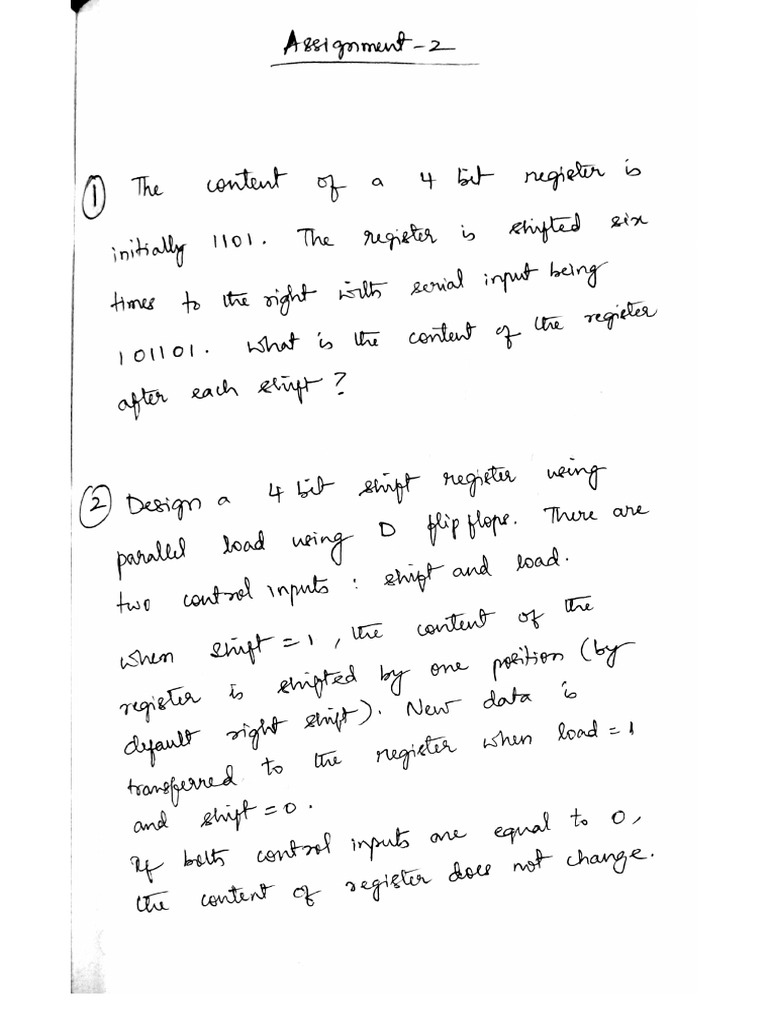 Assignment-2
① The content of a 4 bit register is
initially 1101. The register is shifted six
times to the right with serial input being
101101. What is the content of the register
after each shift?
② Design a 4 bit shift register using
parallel load using D flip flops. There are
two control inputs : shift and load.
when shift = 1, the content of the
register is shifted by one position (by
default right shift). New data is
transferred to the register when load = 1
and shift = 0.
If both control inputs are equal to 0,
the content of register does not change.